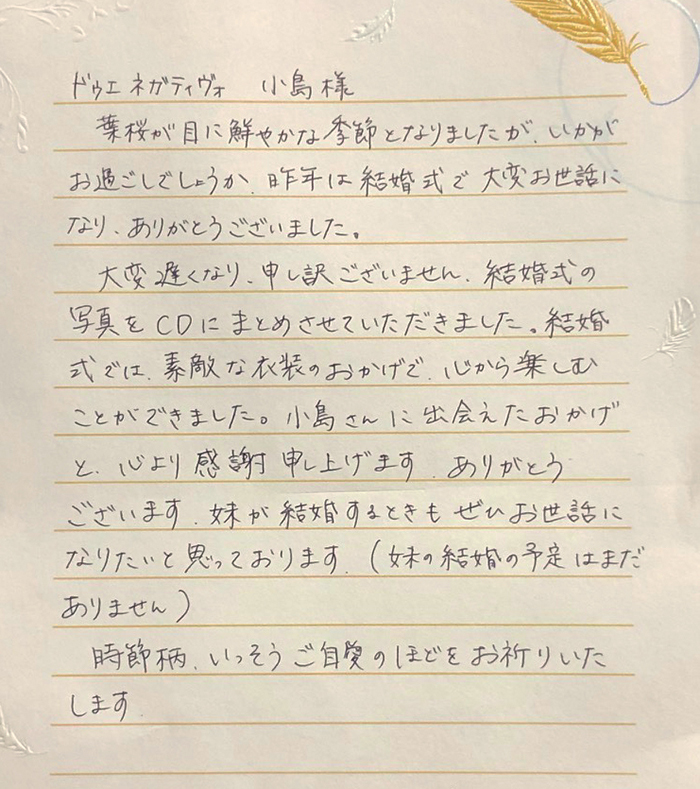 ドゥエ ネガティヴォ 小島様
葉桜が目に鮮やかな季節となりましたが、いかが
お過ごしでしょうか、昨年は結婚式で大変お世話に
なり、ありがとうございました。
大変遅くなり、申し訳ございません、結婚式の
写真をCDにまとめさせていただきました。結婚
式では、素敵な衣装のおかげで、心から楽しむ
ことができました。小島さんに出会えたおかげ
と、心より感謝申し上げます、ありがとう
ございます、妹が結婚するときもぜひお世話に
なりたいと思っております、(妹の結婚の予定はまだ
ありません)
時節柄、いっそうご自愛のほどをお祈りいた
します、